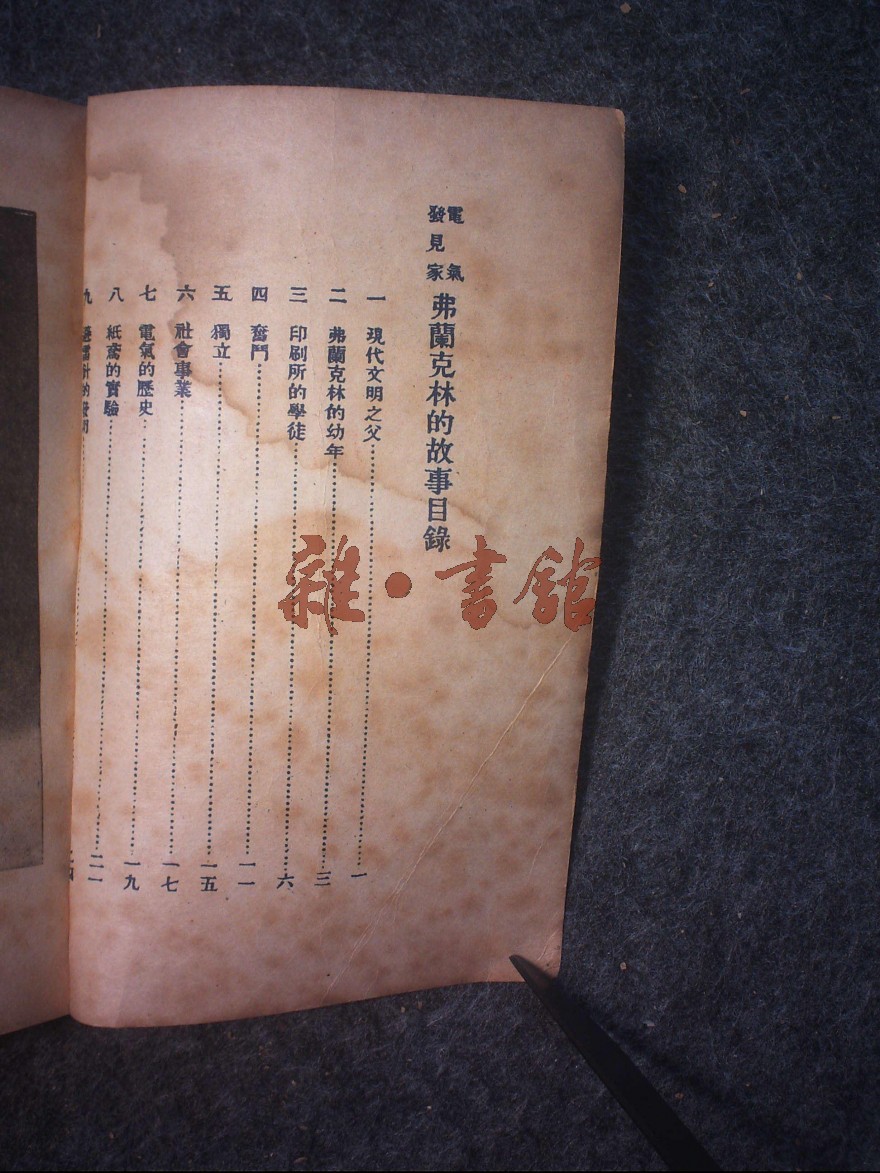 電氣
發見家
弗蘭克林的故事目錄
一 現代文明之父……………………一
二 弗蘭克林的幼年……………………三
三 印刷所的學徒……………………六
四 奮鬥……………………一一
五 獨立……………………一五
六 社會事業……………………一七
七 電氣的歷史……………………一九
八 紙鳶的實驗……………………二一
九 避雷針的發明……………………
雜·書館